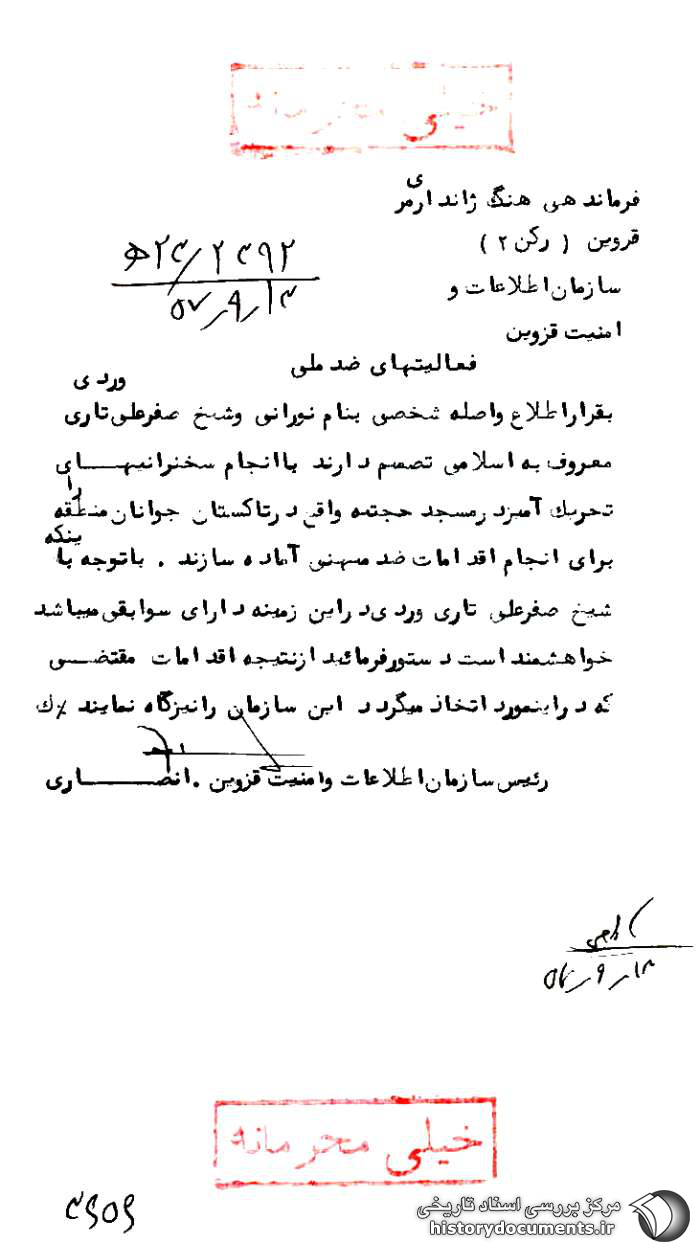 خیلی محرمانه
فرماندهی هنگ ژاندارمری
قزوین ( رکن ۲ )
۲۴۹۲ / ۲۴ ه‍
۵۷/۹/۱۳
سازمان اطلاعات و
امنیت قزوین
فعالیتهای ضد ملی
بقرار اطلاع واصله شخصی بنام نورانی و شیخ صفرعلی تاری وردی
معروف به اسلامی تصمیم دارند با انجام سخنرانیهای
تحریک آمیز در مسجد حجتیه واقع در تاکستان جوانان منطقه را
برای انجام اقدامات ضد میهنی آماده سازند . با توجه باینکه
شیخ صفرعلی تاری وردی در این زمینه دارای سوابقی میباشد
خواهشمند است دستور فرمائید از نتیجه اقدامات مقتضی
که در اینمورد اتخاذ میگردد این سازمان را نیز آگاه نمایند
رئیس سازمان اطلاعات و امنیت قزوین . انصاری
خیلی محرمانه
مرکز بررسی اسناد تاریخی
historydocuments.ir